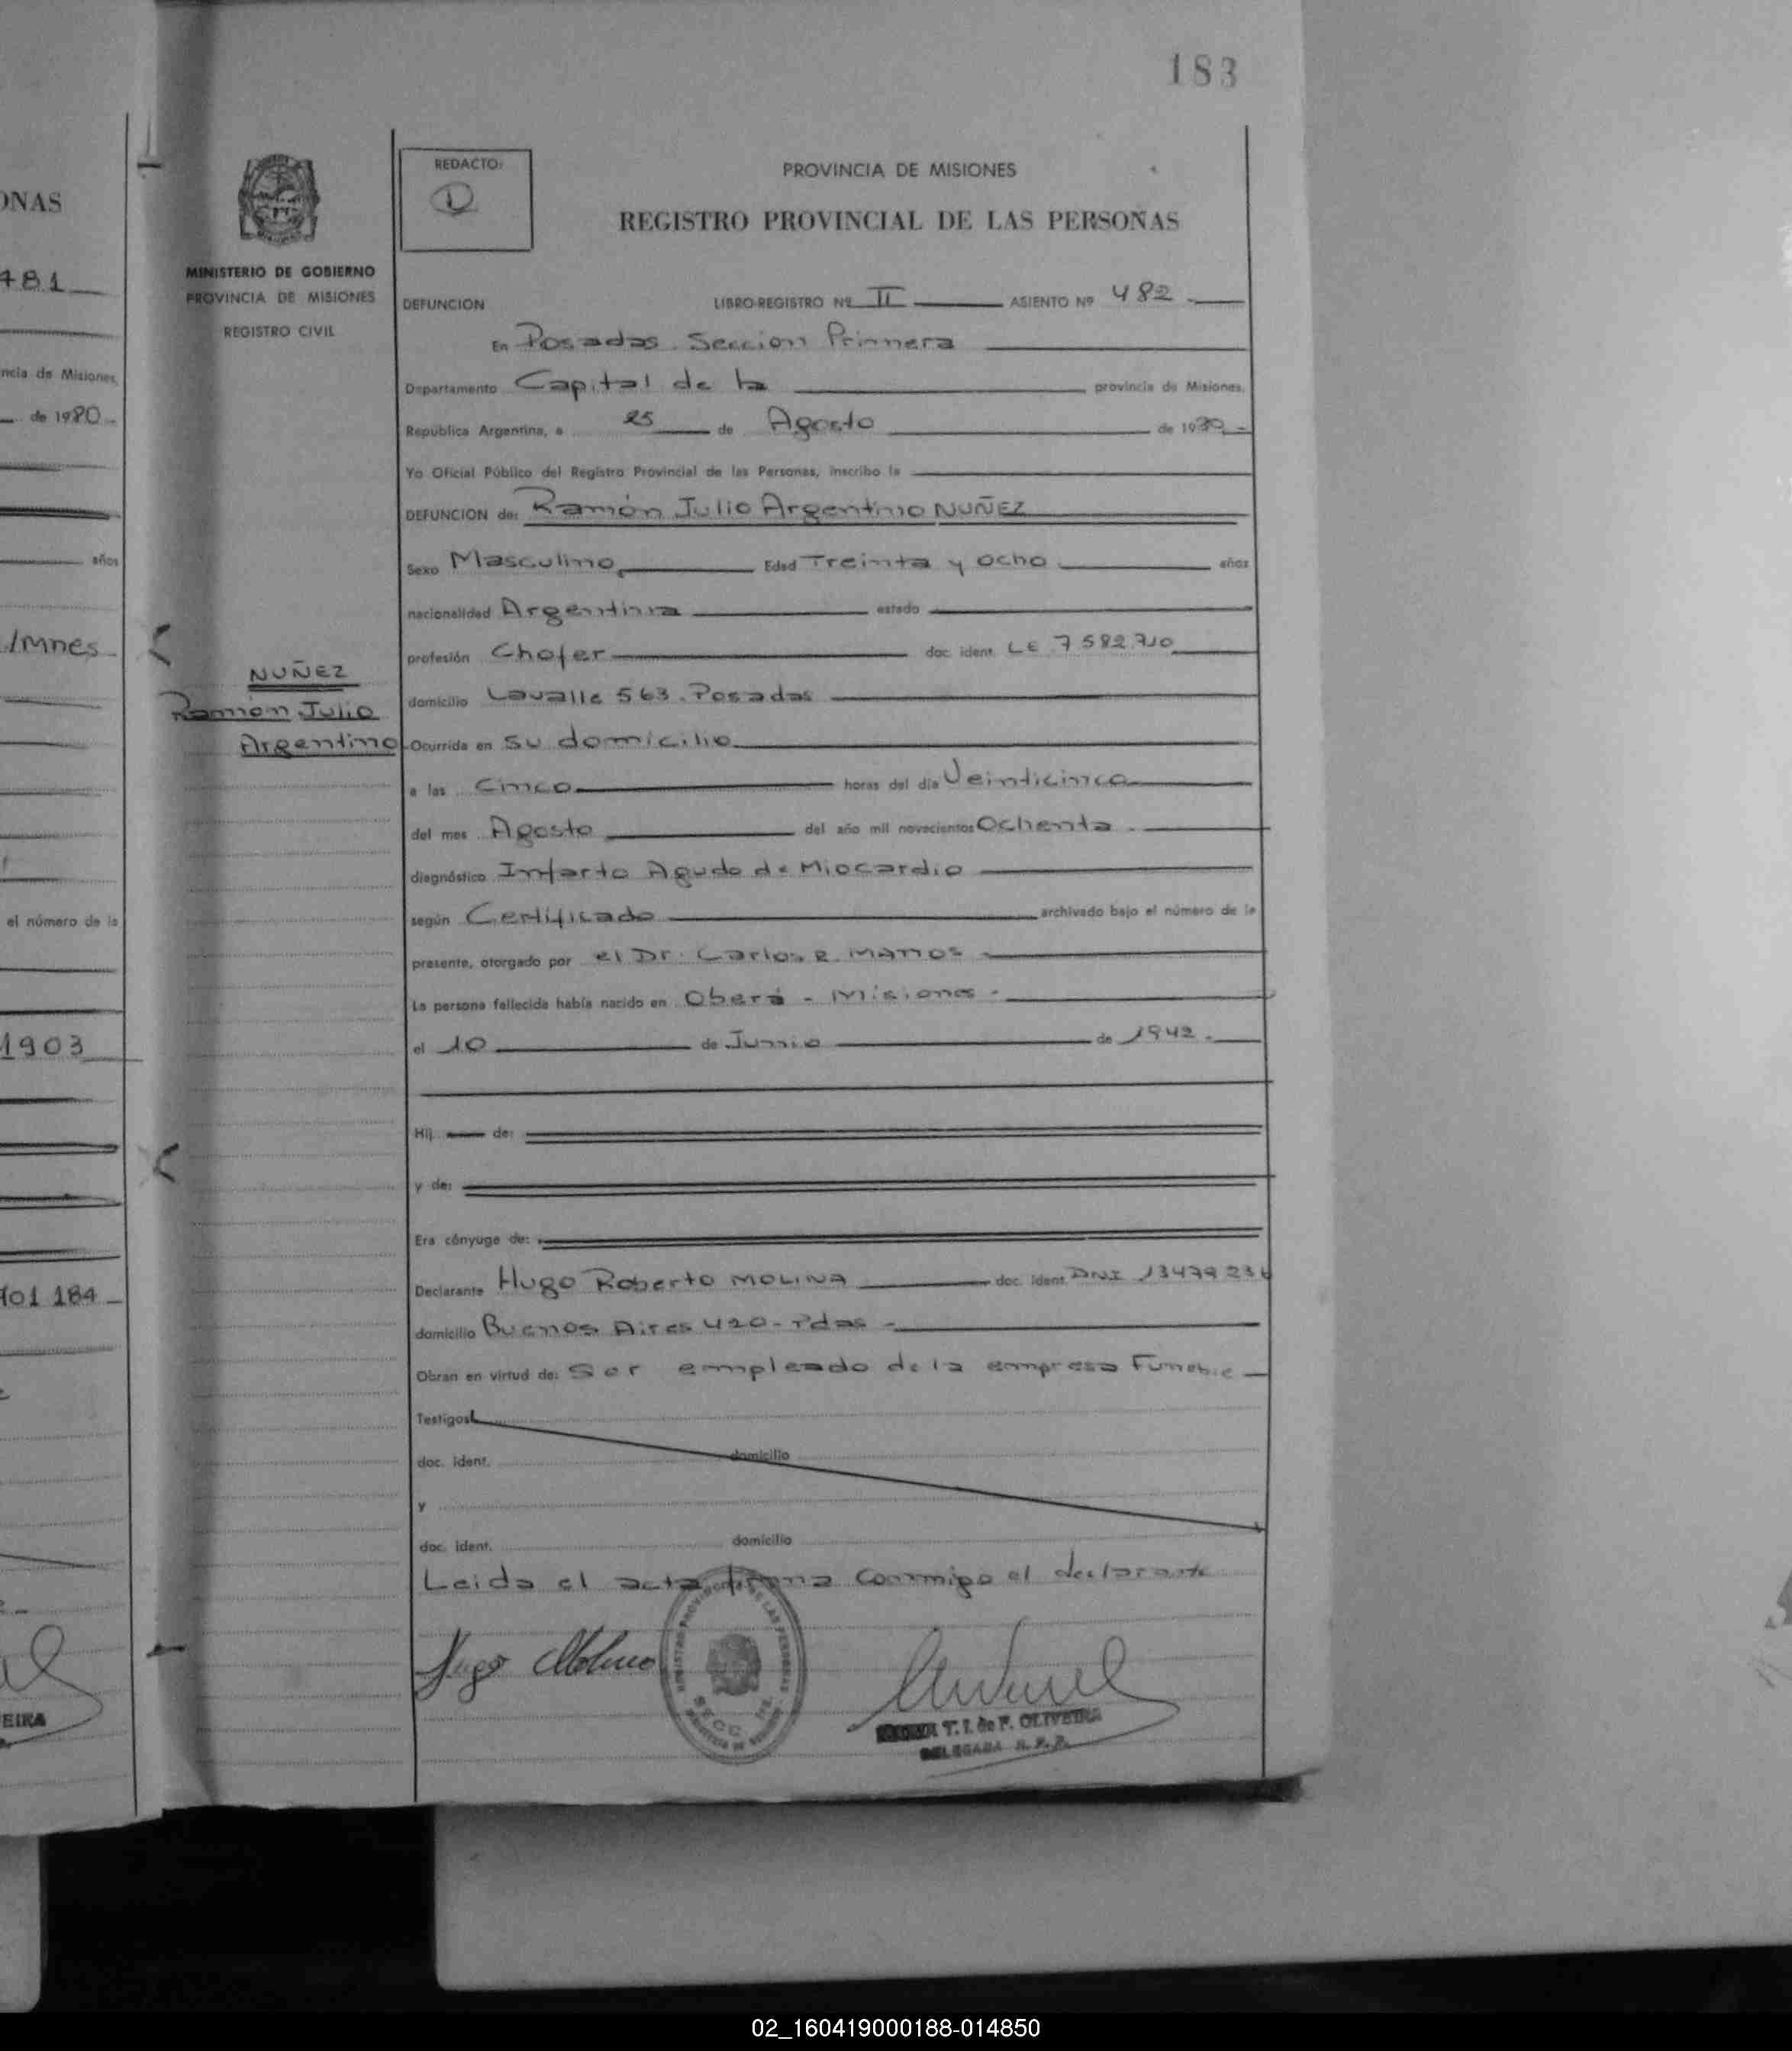 183
ONAS
481
ncia de Misiones,
de 1980-
años
/Mnes
el número de la
1903
101 184
EIRA
MINISTERIO DE GOBIERNO
PROVINCIA DE MISIONES
REGISTRO CIVIL
NUÑEZ
Ramón Julio
Argentino
REDACTO:
PROVINCIA DE MISIONES
REGISTRO PROVINCIAL DE LAS PERSONAS
DEFUNCION LIBRO-REGISTRO Nº II ASIENTO Nº 482.
En Posadas. Seccion Primera
Departamento Capital de la provincia de Misiones.
República Argentina, a 25 de Agosto de 1980-
Yo Oficial Público del Registro Provincial de las Personas, inscribo la
DEFUNCION de: Ramón Julio Argentino NUÑEZ
Sexo Masculino Edad Treinta y ocho años
nacionalidad Argentina estado
profesión Chofer doc. ident. LE 7582.710
domicilio Lavalle 563. Posadas
Ocurrida en su domicilio
a las Cinco horas del día Veinticinco
del mes Agosto del año mil novecientos Ochenta.
diagnóstico Infarto Agudo de Miocardio
según Certificado archivado bajo el número de la
presente, otorgado por el Dr. Carlos R.
La persona fallecida había nacido en Oberá - Misiones -
el 10 de Junio de 1942.
Hij de:
y de:
Era cónyuge de:
Declarante Hugo Roberto MOLINA doc. ident. DNI 13479236
domicilio Buenos Aires 420- Pdas -
Obran en virtud de: Ser empleado de la empresa Funebre
Testigos
doc. ident. domicilio
y
doc. ident. domicilio
Leida el acta firma conmigo el declarante
Hugo Molina
T. I. de F. OLIVEIRA
DELEGADA R. P. P.
02_160419000188-014850